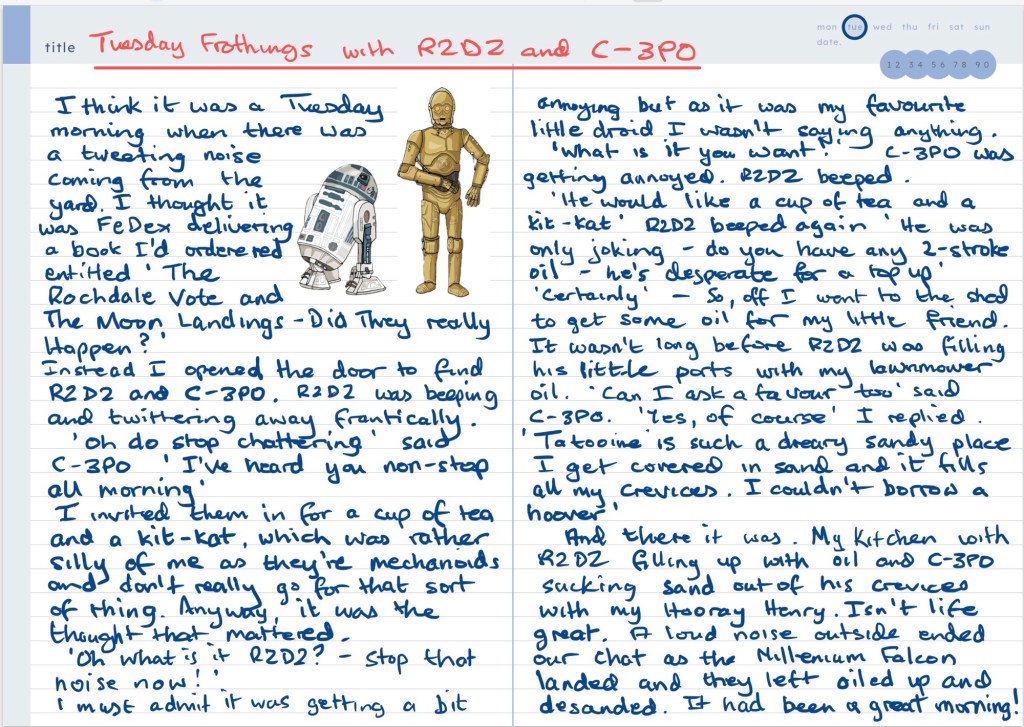 mon tue wed thu fri sat sun
date.
title Tuesday Frothings with R2D2 and C-3PO
1 2 3 4 5 6 7 8 9 0
I think it was a Tuesday
morning when there was
a tweeting noise
coming from the
yard. I thought it
was FeDex delivering
a book I'd orderered
entitled 'The
Rochdale Vote and
The Moon Landings - Did They really
Happen?'
Instead I opened the door to find
R2D2 and C-3PO. R2D2 was beeping
and twittering away frantically.
'Oh do stop chattering' said
C-3PO 'I've heard you non-stop
all morning'
I invited them in for a cup of tea
and a kit-kat, which was rather
silly of me as they're mechanoids
and don't really go for that sort
of thing. Anyway, it was the
thought that mattered.
'Oh what is it R2D2? - stop that
noise now!'
I must admit it was getting a bit
annoying but as it was my favourite
little droid I wasn't saying anything.
'What is it you want?' C-3PO was
getting annoyed. R2D2 beeped.
'He would like a cup of tea and a
kit-kat' R2D2 beeped again 'He was
only joking - do you have any 2-stroke
oil - he's desperate for a top up'
'Certainly' - So, off I went to the shed
to get some oil for my little friend.
It wasn't long before R2D2 was filling
his little parts with my lawnmower
oil. 'Can I ask a favour too' said
C-3PO. 'Yes, of course' I replied.
'Tatooine is such a dreary sandy place
I get covered in sand and it fills
all my crevices. I couldn't borrow a
hoover'
And there it was. My Kitchen with
R2D2 filling up with oil and C-3PO
sucking sand out of his crevices
with my Hooray Henry. Isn't life
great. A loud noise outside ended
our chat as the Millenium Falcon
landed and they left oiled up and
desanded. It had been a great morning!